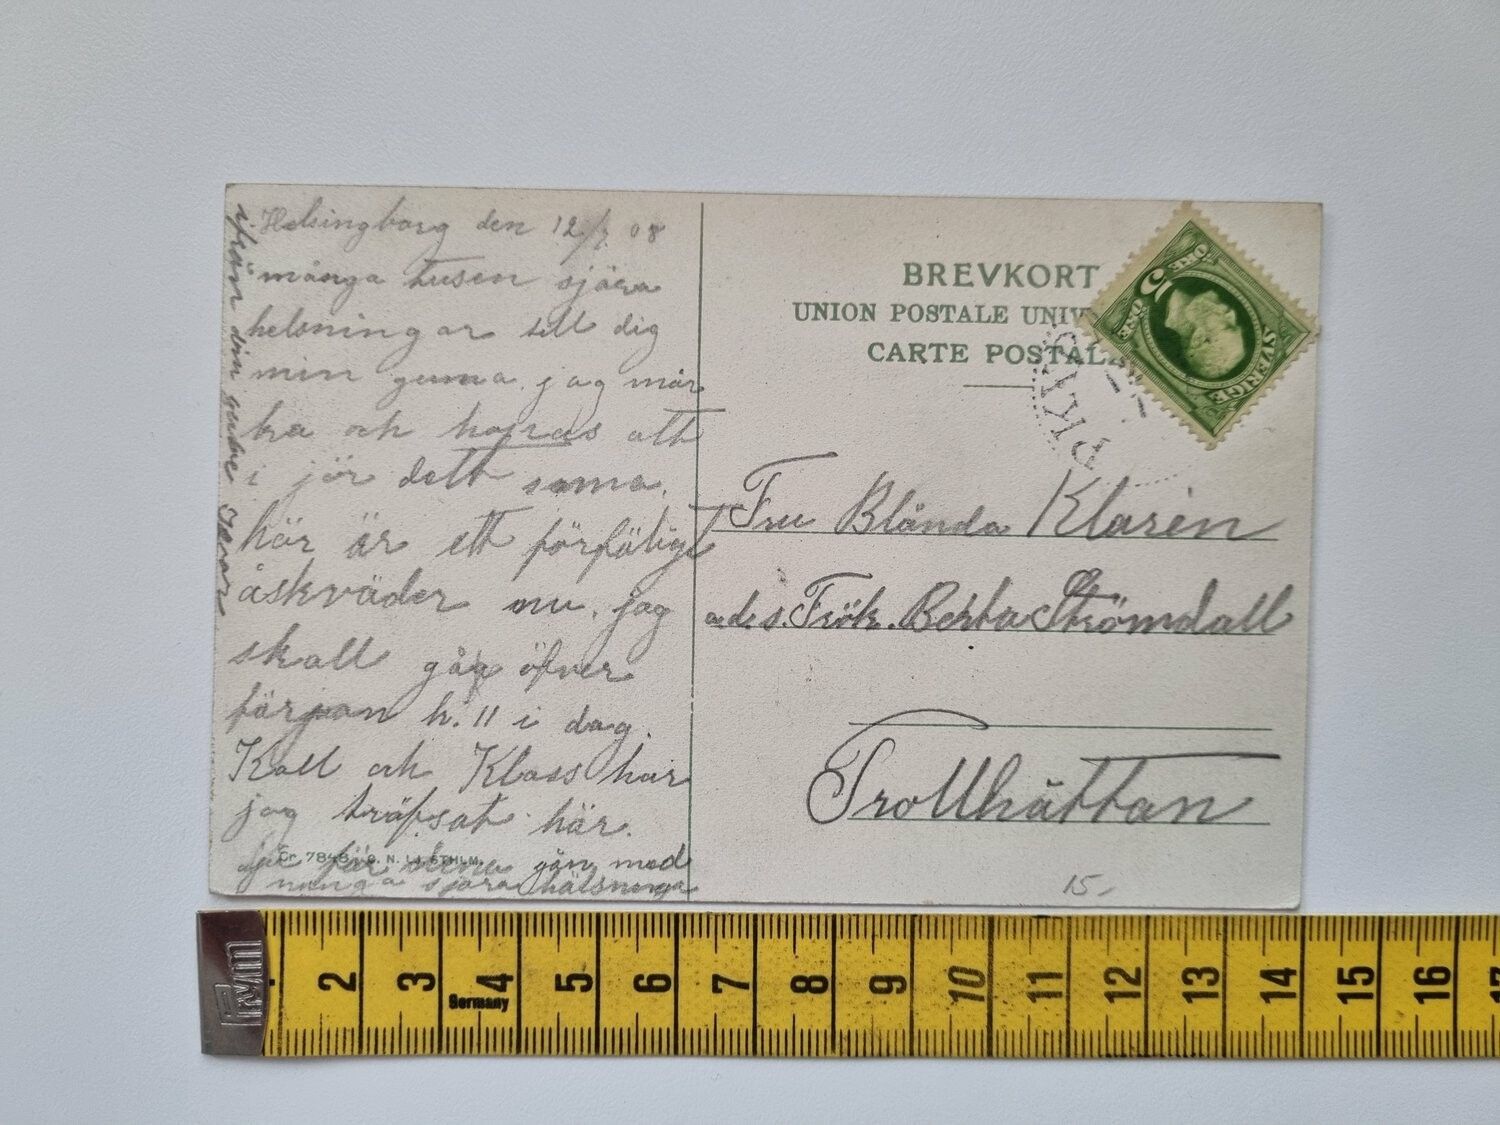 Helsingborg den 12/7 08
många tusen sjära
helsningar till dig
min guma. jag mår
bra och hopas att
i jör dett sama.
här är ett förfäligt
åskväder nu. jag
skall gå öfver
färjan h. 11 i dag.
Kall och Klass har
jag träfsat här.
för gån med
många sjära hälsninga
ifrån din gube
BREVKORT
UNION POSTALE UNIV
CARTE POSTAL
PKXP
5 ÖRE
ÖRE
SVERIGE
Fru Blända Klarén
ads. Frök. Berta Strömdall
Trollhättan
15,-
Gr. 7848. G. N. Lj. STHLM.
2 3 4 5 6 7 8 9 10 11 12 13 14 15 16 17
Germany